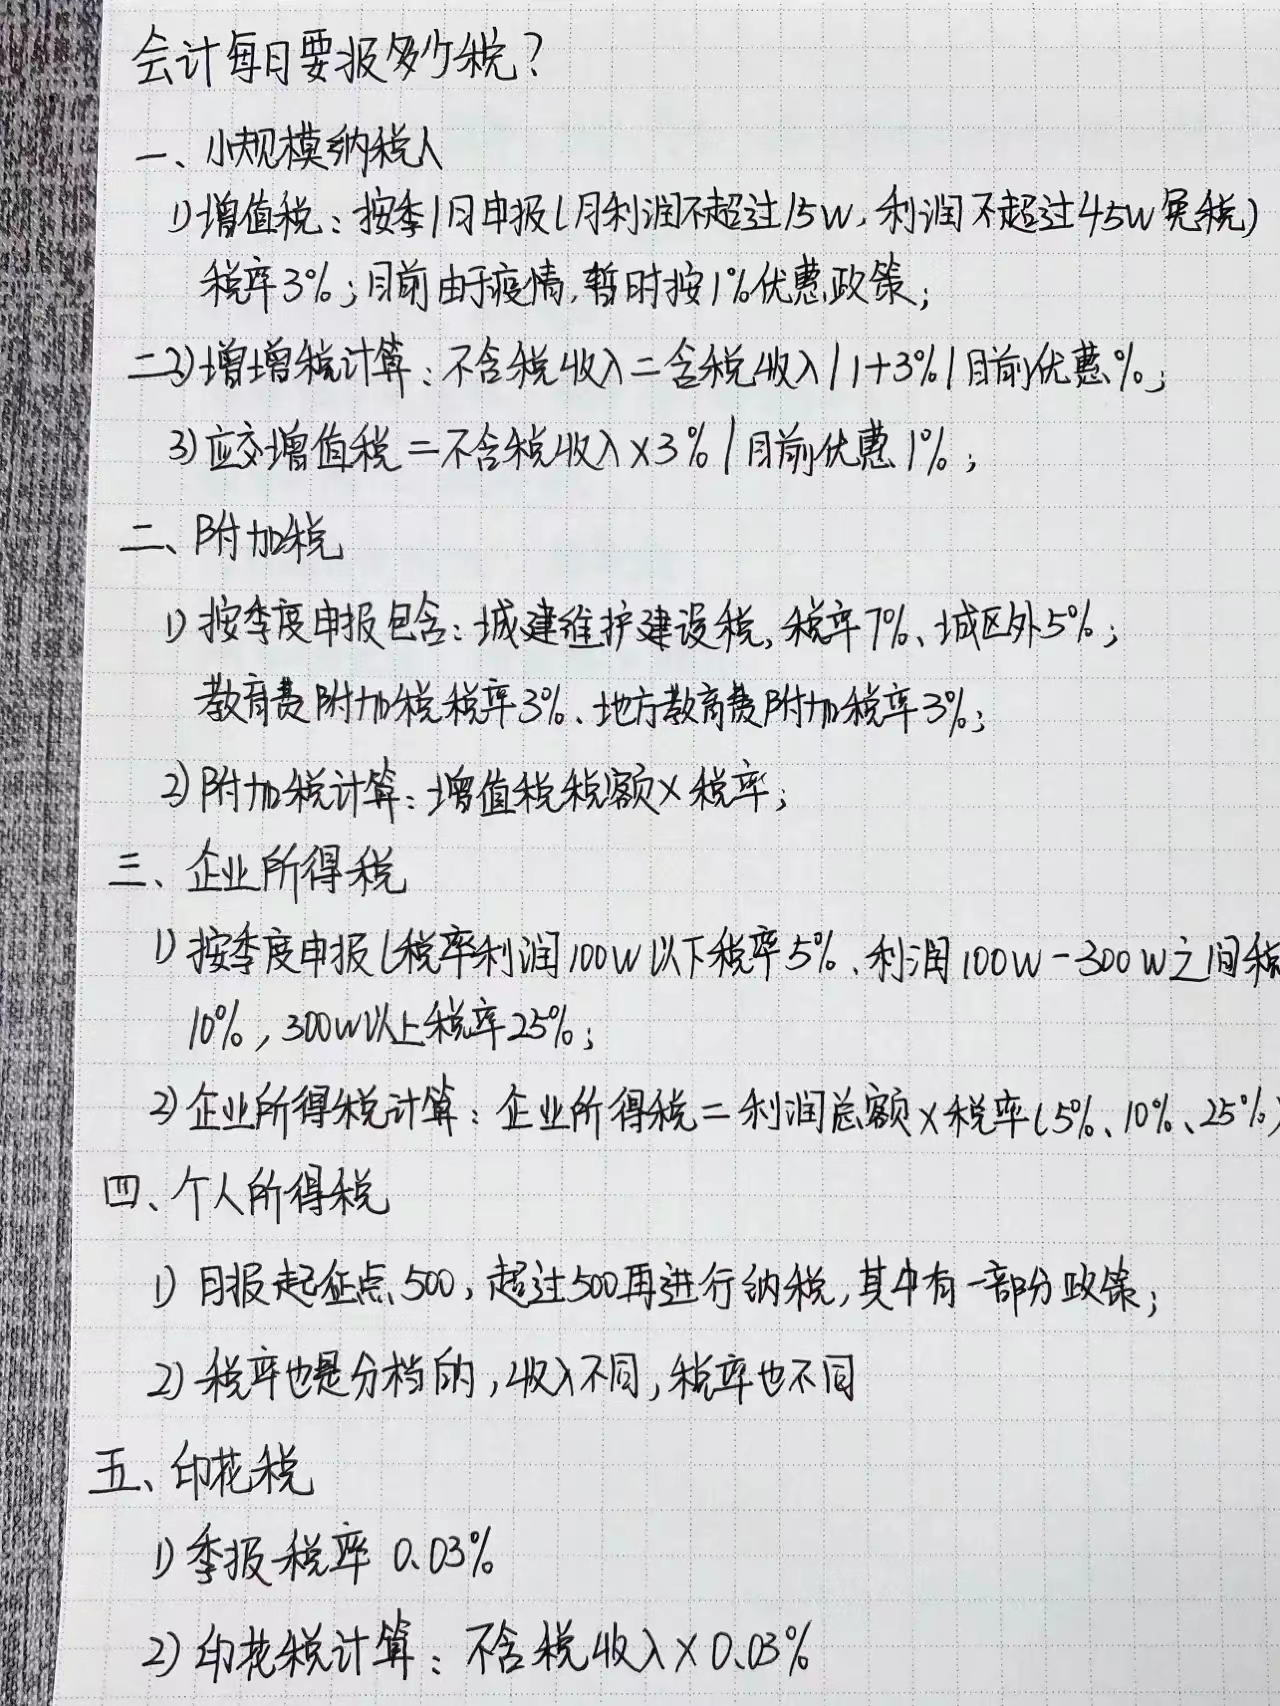 会计每日要报多少税?
一、小规模纳税人
1)增值税:按季/月申报(月利润不超过15W,利润不超过45W免税)
税率3%;目前由于疫情,暂时按1%优惠政策;
二2)增增税计算:不含税收入=含税收入/1+3%/目前优惠%;
3)应交增值税=不含税收入×3%/目前优惠1%;
二、附加税
1)按季度申报包含:城建维护建设税,税率7%、城区外5%;
教育费附加税税率3%、地方教育费附加税率3%;
2)附加税计算:增值税税额×税率;
三、企业所得税
1)按季度申报(税率利润100W以下税率5%、利润100W-300W之间税
10%,300W以上税率25%;
2)企业所得税计算:企业所得税=利润总额×税率(5%、10%、25%)
四、个人所得税
1)月报起征点500,超过500再进行纳税,其中有一部分政策;
2)税率也是分档的,收入不同,税率也不同
五、印花税
1)季报税率0.03%
2)印花税计算:不含税收入×0.03%